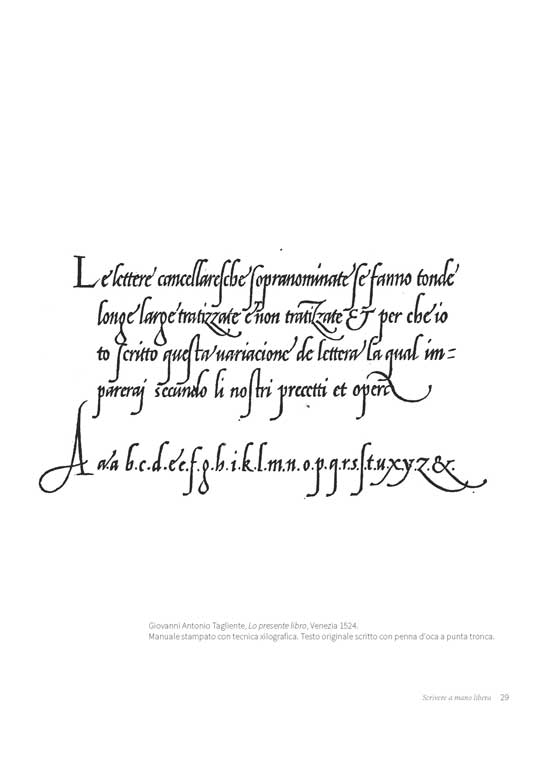 Le lettere cancellaresche sopranominate se fanno tonde
longe large tratizzate e non tratizzate & per che io
to scritto questa uariacione de lettera la qual im=
parerai secundo li nostri precetti et opere
A a.a b.c.d.e.e.f.g.h.i.k.l.m.n.o.p.q.r.s.ſ.t.u.x.y.z.&.
Giovanni Antonio Tagliente, Lo presente libro, Venezia 1524.
Manuale stampato con tecnica xilografica. Testo originale scritto con penna d'oca a punta tronca.
Scrivere a mano libera 29